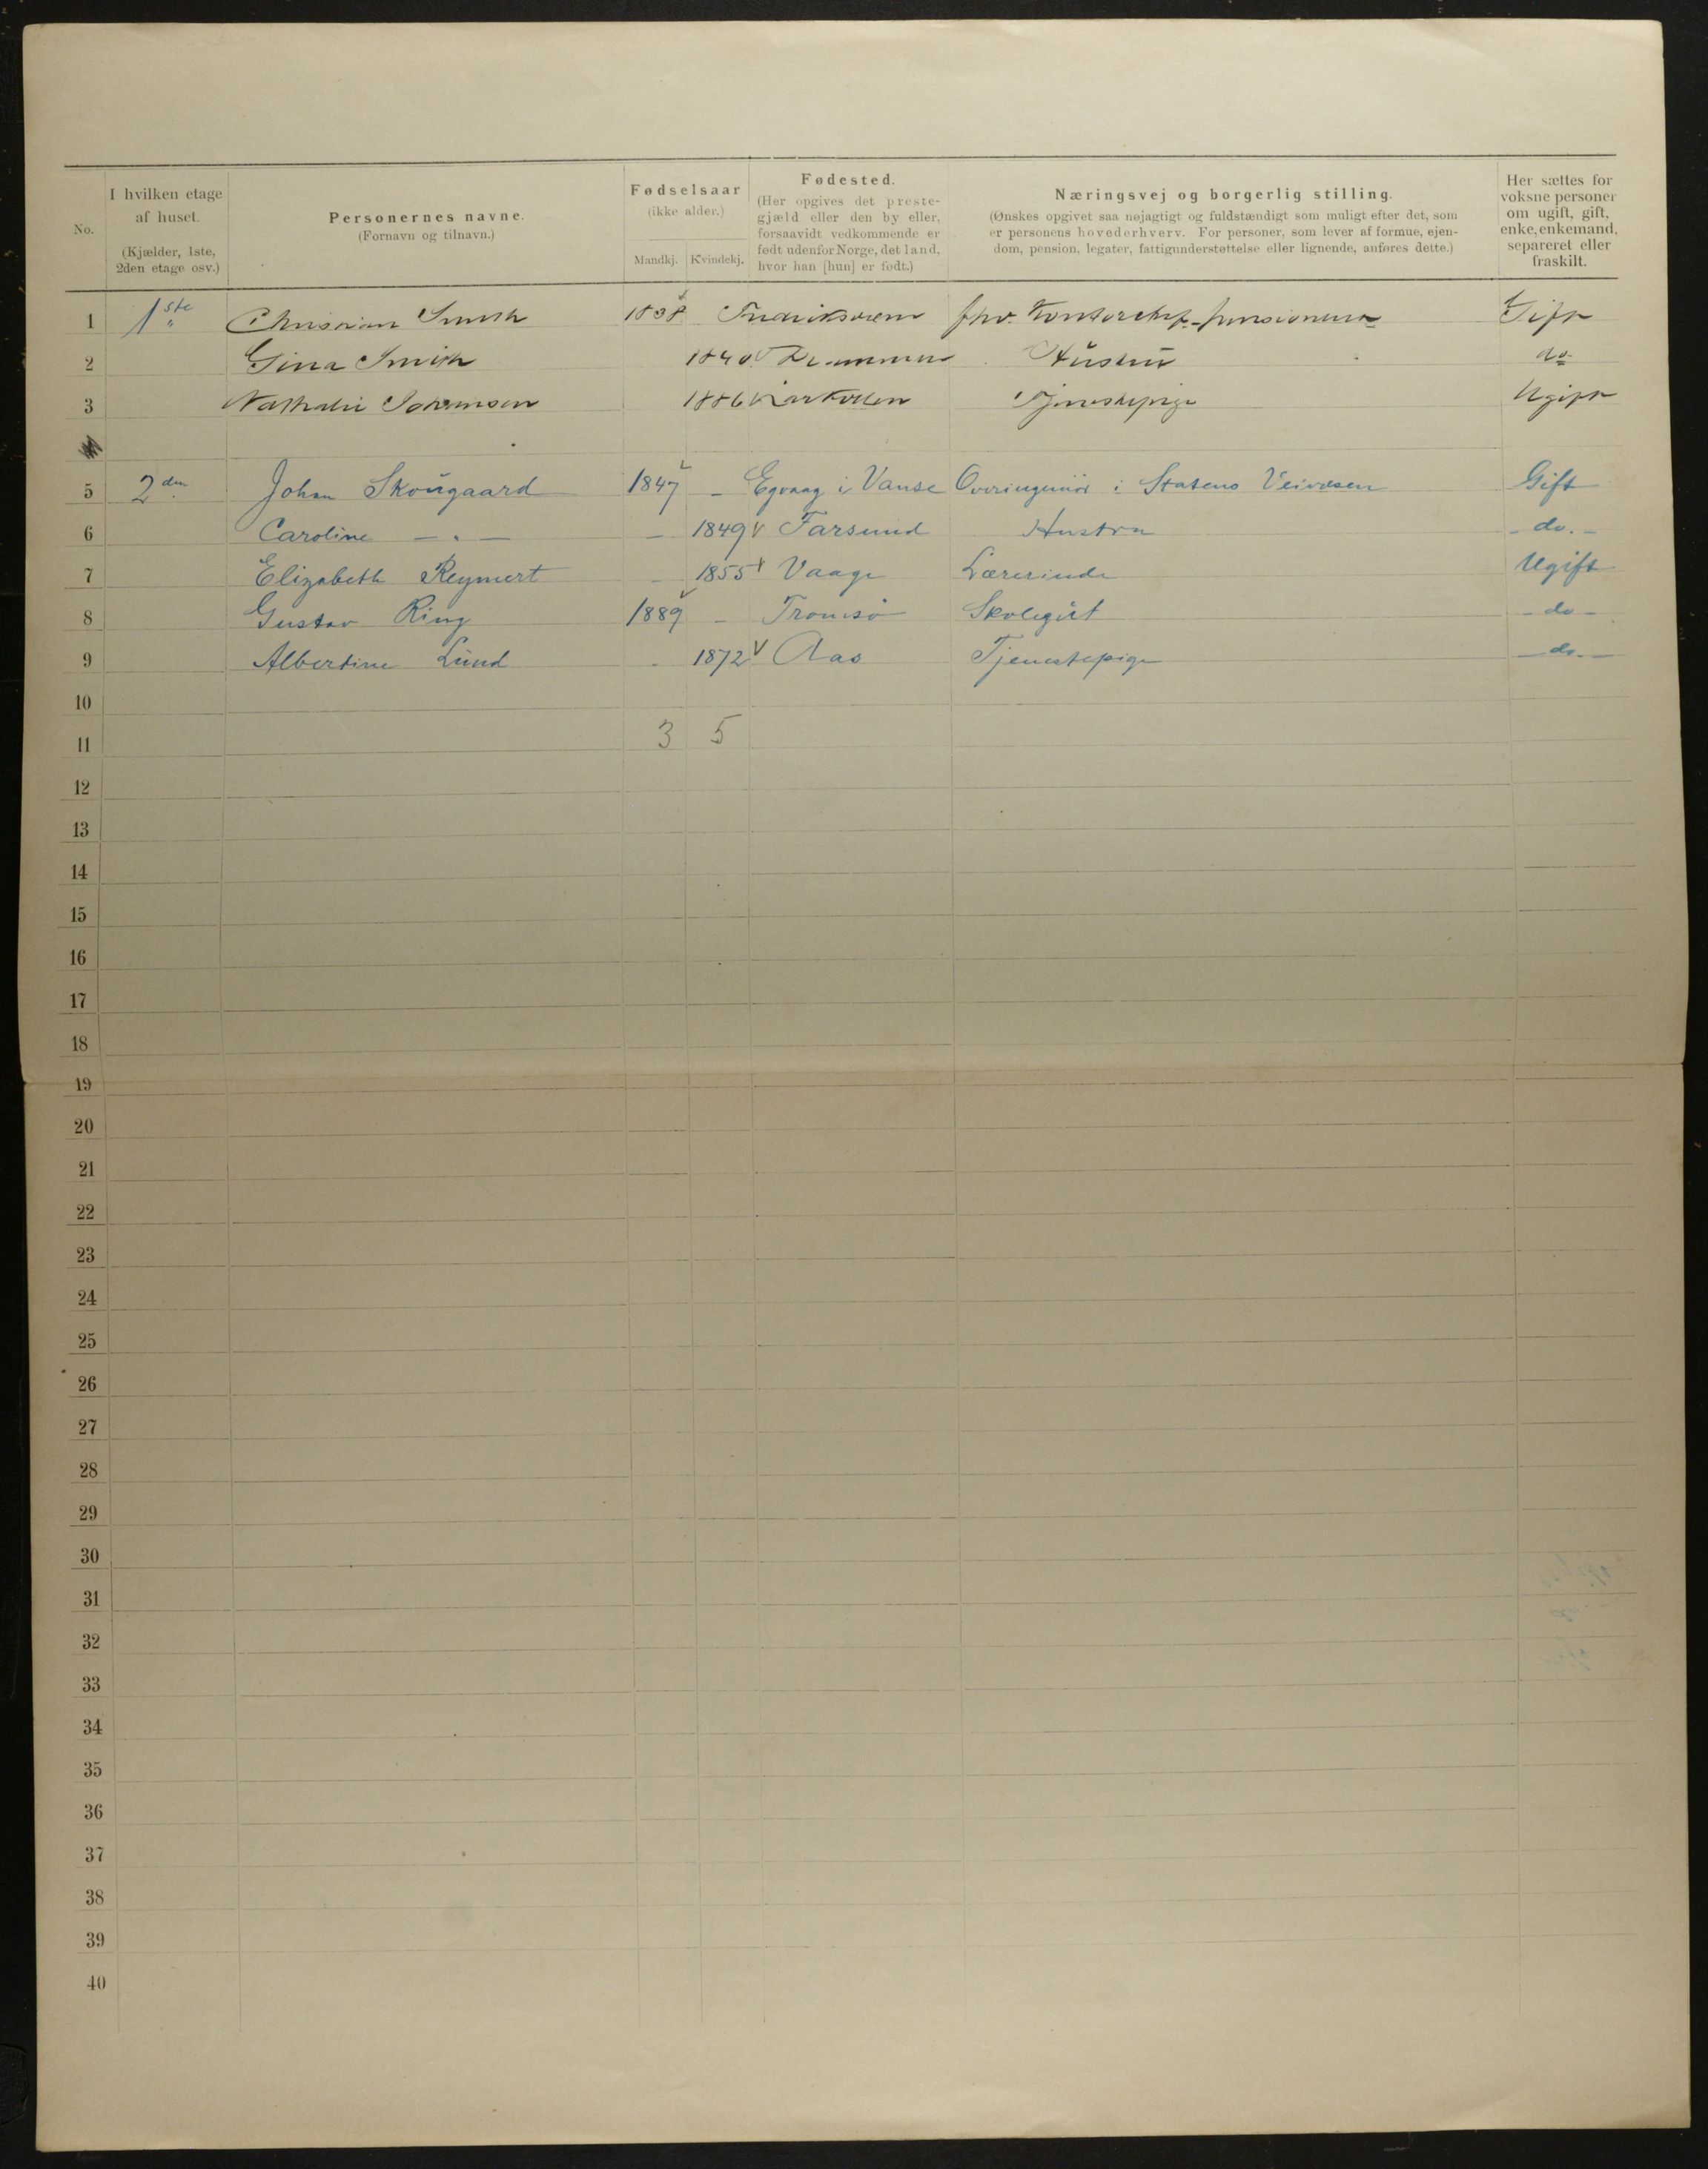 No.
I hvilken etage
af huset.
(Kjælder, 1ste,
2den etage osv.)
Personernes navne.
(Fornavn og tilnavn.)
Fødselsaar
(ikke alder.)
Mandkj. Kvindekj.
Fødested.
(Her opgives det preste-
gjæld eller den by eller,
forsaavidt vedkommende er
født udenfor Norge, det land,
hvor han [hun] er født.)
Næringsvej og borgerlig stilling.
(Ønskes opgivet saa nøjagtigt og fuldstændigt som muligt efter det, som
er personens hovederhverv. For personer, som lever af formue, ejen-
dom, pension, legater, fattigunderstøttelse eller lignende, anføres dette.)
Her sættes for
voksne personer
om ugift, gift,
enke, enkemand,
separeret eller
fraskilt.
1 1ste Christian Smith 1838 Fredriksværn fhv. Kontorchef - pensionert Gift
2 Gina Smith 1840 Hustru do
3 Nathalie Johannsen 1886 Tjenestepige Ugift
5 2den Johan Skougaard 1847 - Egvaag i Vanse Overingeniør i Statens Veivæsen Gift
6 Caroline - " - - 1849 Farsund Hustru - do. -
7 Elizabeth Reymert - 1855 Vaage Lærerinde Ugift
8 Gustav Ring 1889 - Tromsø Skolegut - do -
9 Albertine Lund - 1872 Aas Tjenestepige - do. -
10
11 3 5
12
13
14
15
16
17
18
19
20
21
22
23
24
25
26
27
28
29
30
31
32
33
34
35
36
37
38
39
40